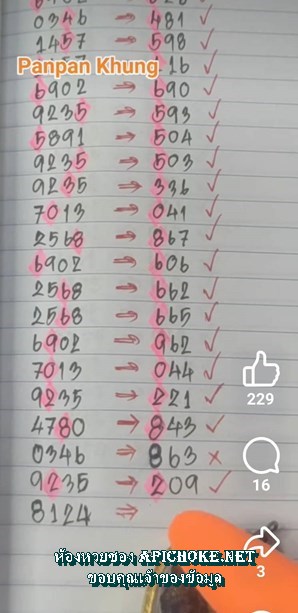 0346 → 481 ✓
1457 → 598 ✓
Panpan Khung 16 ✓
6902 → 690 ✓
9235 → 593 ✓
5891 → 504 ✓
9235 → 503 ✓
9235 ⇒ 336 ✓
7013 → 041 ✓
2568 ⇒ 867 ✓
6902 ⇒ 606 ✓
2568 ⇒ 662 ✓
2568 ⇒ 665 ✓
6902 → 962 ✓
7013 → 044 ✓
9235 ⇒ 221 ✓
4780 → 843 ✓
0346 ⇒ 863 ×
9235 → 209 ✓
8124 ⇒
229
16
3
ห้องหวยซอง APICHOKE.NET
ขอบคุณเจ้าของข้อมูล